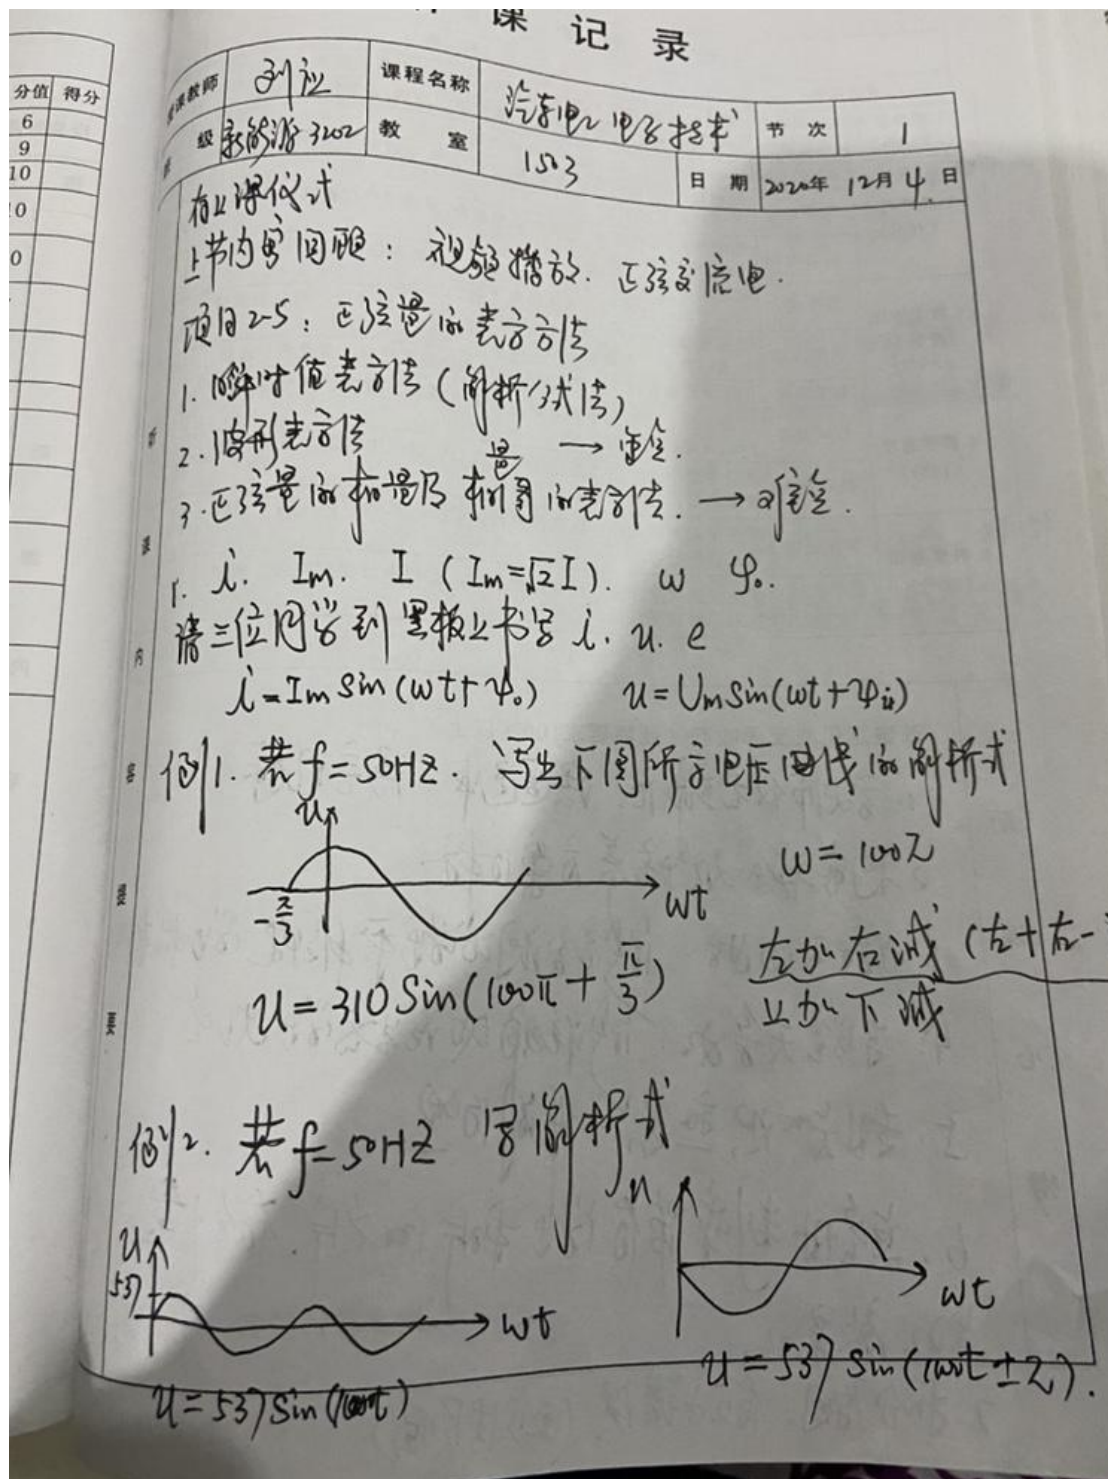 课 记 录
分值 得分
6
9
10
10
0
授课教师 刘应 课程名称 汽车电工电子技术 节 次 1
班 级 新能源3202 教 室 1503 日 期 2020年 12月 4 日
授 课 内 容
有上课仪式
上节内容回顾：视频播放. 正弦交流电.
项目2-5：正弦量的表示方法
1. 瞬时值表示法 (解析式法)
2. 波形表示法 → 重点.
3. 正弦量的相量及相量图的表示法. → 难点.
1. i. Im. I (Im=√2I). ω φ₀.
请三位同学到黑板上书写 i. u. e
i=Im sin(ωt+ψ₀) u=Um sin(ωt+ψu)
例1. 若 f=50HZ. 写出下图所示电压曲线的解析式
u
ω=100π
-π/3
ωt
左加右减 (左+右-
u=310 Sin(100π+π/3)
上加下减
例2. 若 f=50HZ 写解析式
u
u
537
ωt
ωt
u=537 Sin(100t)
u=537 Sin(100t±π).